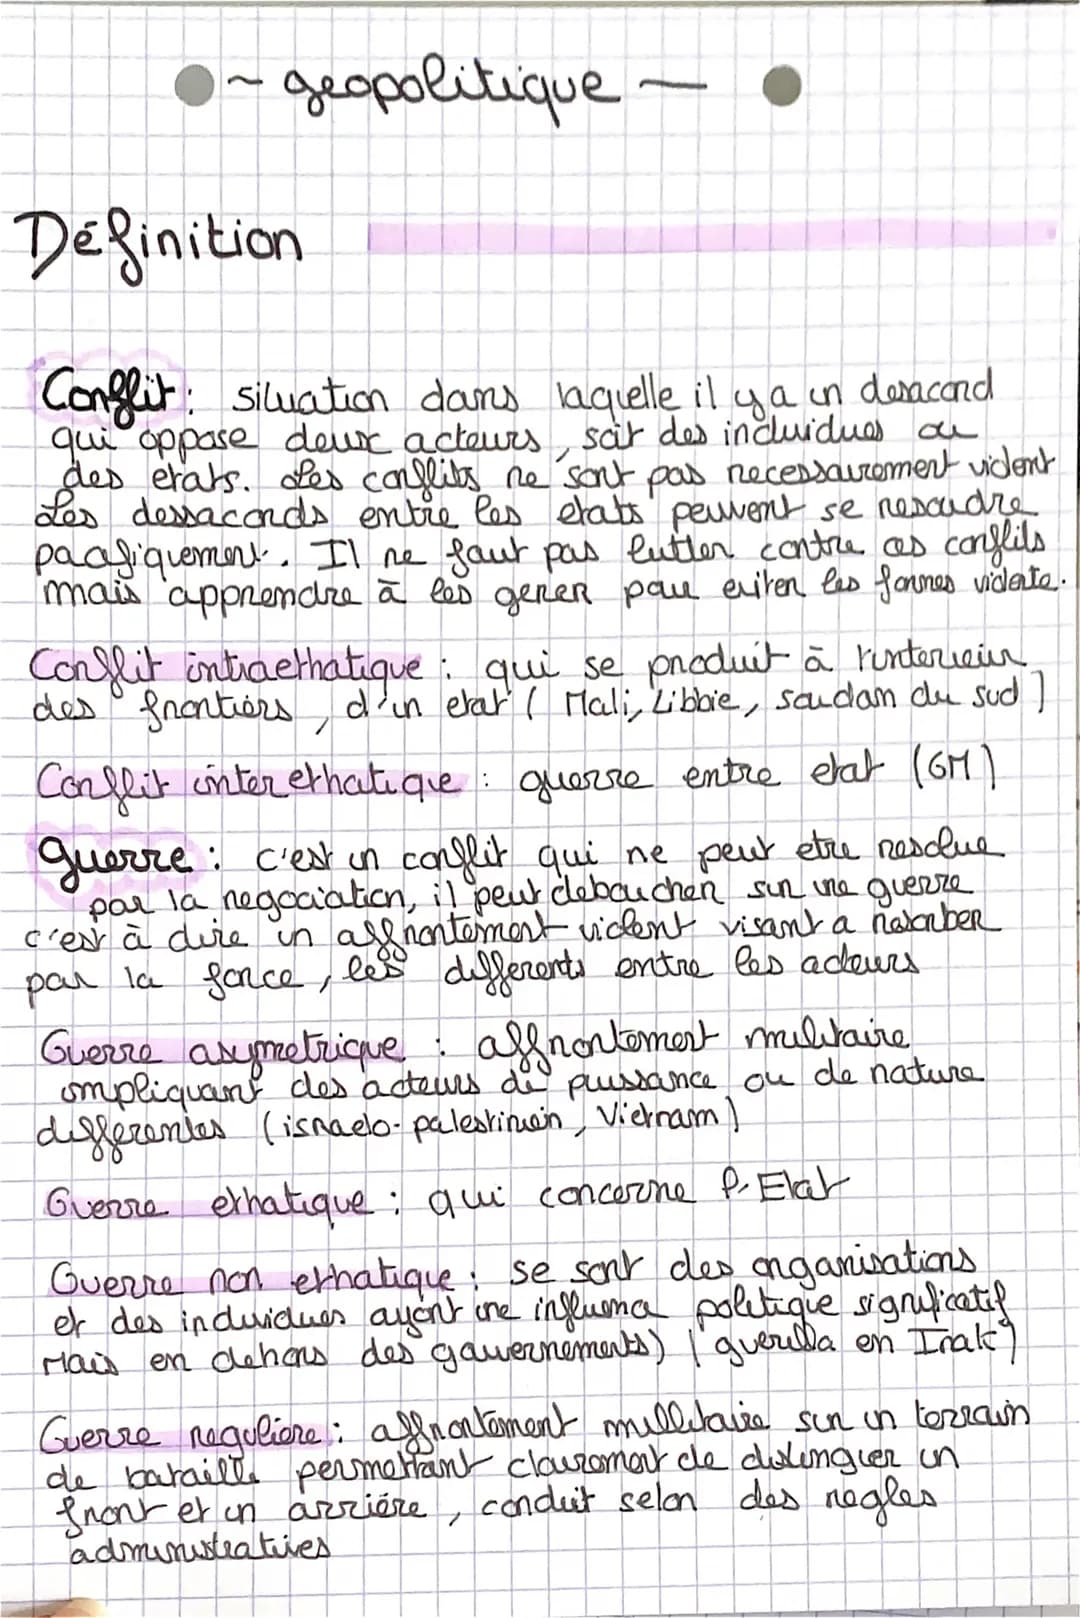 ~ geopolitique —
Définition
Conflit : situation dans laquelle il y a un desacord
qui oppose deux acteurs, soit des individues ou
des etats. Les conflits ne sont pas necessairement violent
Les dessacords entre les etats peuvent se resoudre
pacifiquement. Il ne faut pas lutter contre ces conflits
mais apprendre à les gerer pour eviter les formes violente.
Conflit intraethatique : qui se produit à l'interieur
des frontiers, d'un etat ( Mali, Libbie, soudam du sud )
Conflit interethatique : guerre entre etat (GM)
guerre : c'est un conflit qui ne peut etre resolue
par la negociation, il peut deboucher sur une guerre
c'est à dire un affrontement violent visant a
par la force, les differents entre les acteurs
Guerre asymetrique : affrontement militaire
impliquant des acteurs de puissance ou de nature
differentes (israelo-palestinien, Vietnam)
Guerre ethatique : qui concerne l'Etat
Guerre non ethatique : se sont des organisations
et des individues ayant une politique significatif
Mais en dehors des gouvernements) (guerilla en Irak)
Guerre reguliere : affrontement millitaire sur un terrain
de bataille permettant clairement de distinguer un
front et un arrière, conduit selon des regles
administratives